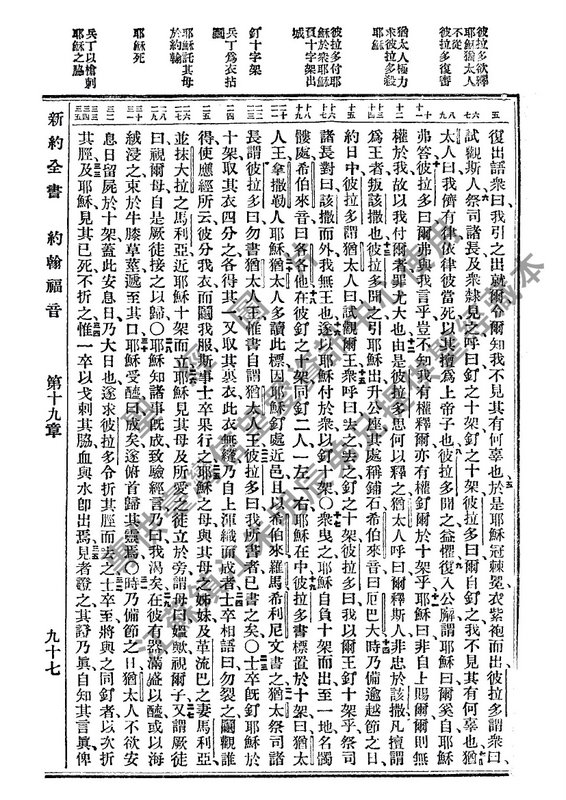 彼拉多欲釋耶穌猶太人不從
彼拉多復審
猶太人極力求彼拉多殺耶穌
彼拉多付耶穌於衆耶穌負十字架出城
釘十字架
兵丁爲衣拈鬮
耶穌託其母於約翰
耶穌死
兵丁以槍刺耶穌之脇
復出語衆曰我引之出就爾令爾知我不見其有何辜也於是耶穌冠棘冕衣紫袍而出彼拉多謂衆曰
試觀斯人祭司諸長及衆隸見之呼曰釘之十架釘之十架彼拉多曰爾自釘之我不見其有何辜也猶
太人曰我儕有律依律彼當死以其擅爲上帝子也彼拉多聞之益懼復入公廨謂耶穌曰爾奚自耶穌
弗答彼拉多曰爾弗與我言乎豈不知我有權釋爾亦有權釘爾於十架乎耶穌曰非自上賜爾爾則無
權於我故以我付爾者罪尤大也由是彼拉多思何以釋之猶太人呼曰爾釋斯人非忠於該撒凡擅謂
爲王者叛該撒也彼拉多聞之引耶穌出升公座其處稱鋪石希伯來音曰厄巴大時乃備逾越節之日
約日中彼拉多謂猶太人曰試觀爾王衆呼曰去之去之釘之十架彼拉多曰我以爾王釘十架乎祭司
諸長對曰該撒而外我無王也遂以耶穌付於衆以釘十架○衆曳之耶穌自負十架而出至一地名髑
髏處希伯來音曰各各他在彼釘之十架同釘二人一左一右耶穌在中彼拉多書標置於十架曰猶太
人王拿撒勒人耶穌猶太人多讀此標因耶穌釘處近邑且以希伯來羅馬希利尼文書之猶太祭司諸
長謂彼拉多曰勿書猶太人王惟書自謂猶太人王彼拉多曰我所書者已書之矣○士卒旣釘耶穌於
十架取其衣四分之各得其一又取其裏衣此衣無縫乃自上渾織而成者士卒相語曰勿裂之鬮觀誰
得使應經所云彼分我衣而鬮我服斯事士卒果行之耶穌之母與其母之姊妹及革流巴之妻馬利亞
並抹大拉之馬利亞近耶穌十架而立耶穌見其母及所愛之徒立於旁謂母曰媼歟視爾子又謂厥徒
曰視爾母自是厥徒接之以歸○耶穌知諸事旣成致驗經言乃曰我渴矣在彼有器滿盛以醯或以海
絨浸之束於牛膝草莖遞至其口耶穌受醯曰成矣遂俯首歸其靈焉○時乃備節之日猶太人不欲安
息日留屍於十架蓋此安息日乃大日也遂求彼拉多令折其脛而去之士卒至將與之同釘者以次折
其脛及耶穌見其已死不折之惟一卒以戈刺其脇血與水卽出焉見者證之其證乃眞自知其言眞俾
新約全書　約翰福音　第十九章　九十七